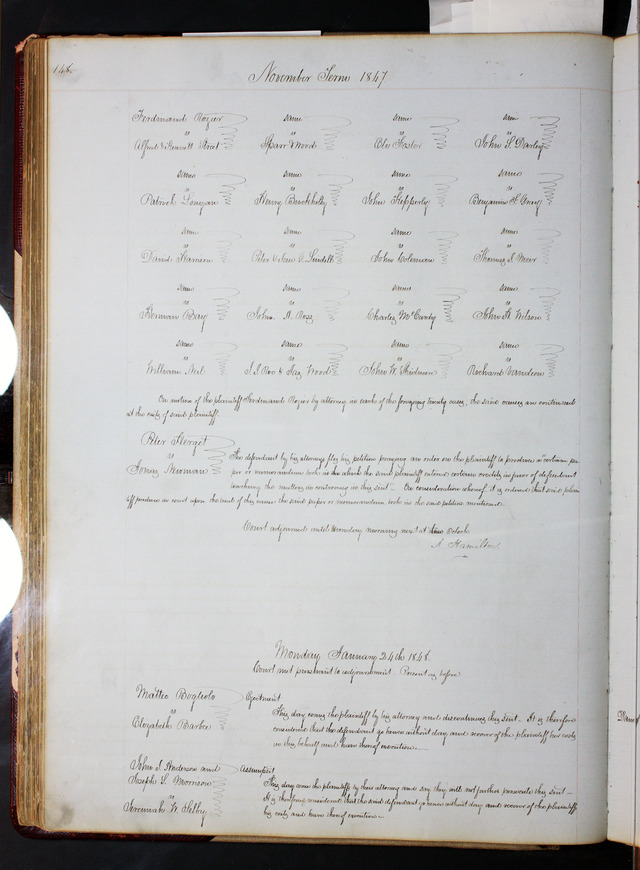 148.
November Term 1847
Ferdinand Rozier same same same
vs vs vs vs
Alfred & Bennett Street Sparr & Wood Eloi Foster John S. Darley
same same same same
vs vs vs vs
Patrick Donegan Henry John Shepperly Benjamin F. Curry
same same same same
vs vs vs vs
David Harrison Peter & John O. Lindell John Coleman Thomas J Meier
same same same same
vs vs vs vs
Herman Bary John. A. Ross Charles McCurdy John H. Wilson
same same same same
vs vs vs vs
William Neil J. J. Roe & Jas Wood John W. Skidmore Richard Vandeen
On motion of the plaintiff Ferdinand Rozier by attorney in each of the foregoing twenty cases, the said causes are continued
at the costs of said plaintiff.
Peter Herget
vs
James Newman
The defendant by his attorneys files his petition praying an order on the plaintiff to produce a certain pa-
per or memorandum book in the which the said plaintiff entered certain credits in favor of defendant
touching the matters in controversy in this suit. On consideration whereof it is ordered that said plain-
tiff produce in court upon the trial of this cause the said paper or memorandum book in the said petition mentioned.
Court adjourned until Monday morning next at nine O'clock
A Hamilton
Monday January 24th 1848.
Court met pursuant to adjournment. Present as before
Matteo Bogliolo
vs
Elizabeth Barbee
Ejectment
This day comes the plaintiff by his attorney and discontinues his suit— It is therefore
considered that the defendant go hence without day and recover of the plaintiff her costs
in this behalf and have thereof execution.—
John J. Anderson and
Joseph S. Morrison
vs
Jeremiah W. Selby
Assumpsit
This day come the plaintiffs by their attorney and say they will not further prosecute this suit—
It is therefore considered that the said defendant go hence without day and recover of the plaintiffs
his costs and have thereof execution.—